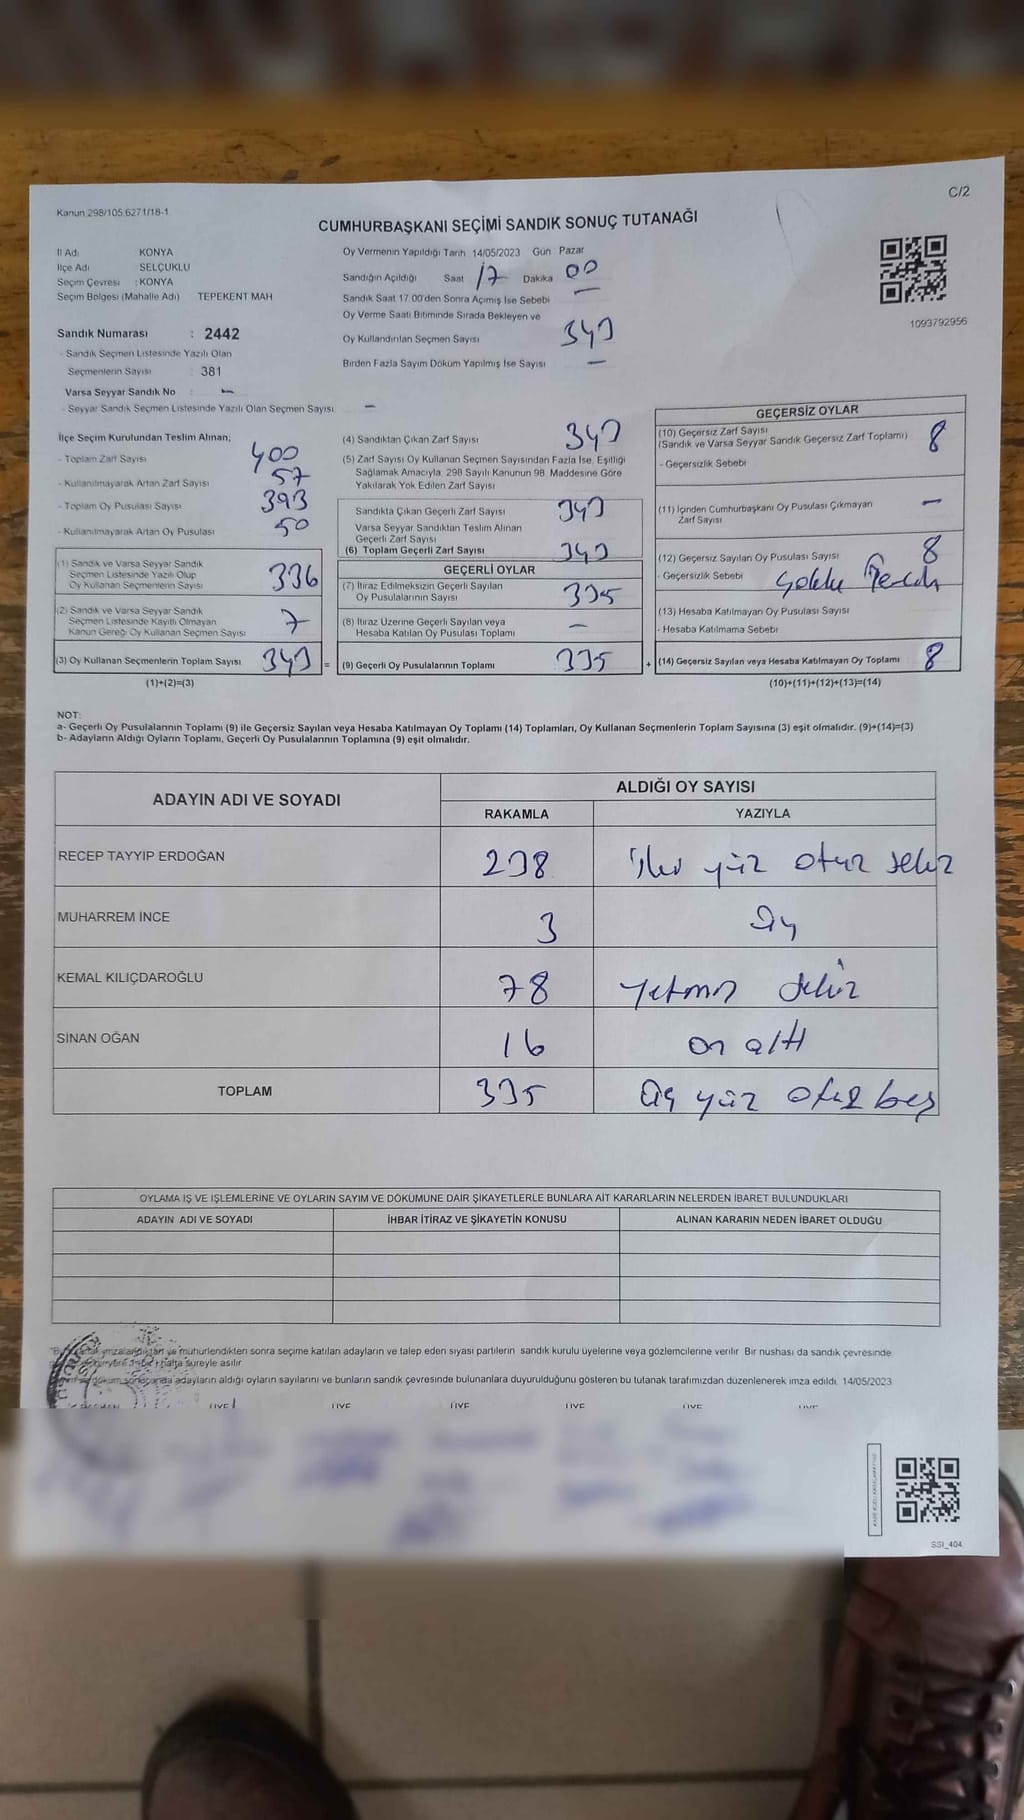 C/2
Kanun 298/105.6271/18-1
CUMHURBAŞKANI SEÇİMİ SANDIK SONUÇ TUTANAĞI
İl Adı KONYA
İlçe Adı SELÇUKLU
Seçim Çevresi : KONYA
Seçim Bölgesi (Mahalle Adı) TEPEKENT MAH
Sandık Numarası : 2442
- Sandık Seçmen Listesinde Yazılı Olan
Seçmenlerin Sayısı : 381
Varsa Seyyar Sandık No : -
- Seyyar Sandık Seçmen Listesinde Yazılı Olan Seçmen Sayısı -
Oy Vermenin Yapıldığı Tarih 14/05/2023 Gün Pazar
Sandığın Açıldığı Saat 17 Dakika 00
Sandık Saat 17 00'den Sonra Açımış İse Sebebi -
Oy Verme Saati Bitiminde Sırada Bekleyen ve
Oy Kullandırılan Seçmen Sayısı 343
Birden Fazla Sayım Döküm Yapılmış İse Sayısı -
1093792956
İlçe Seçim Kurulundan Teslim Alınan;
- Toplam Zarf Sayısı 400
- Kullanılmayarak Artan Zarf Sayısı 57
- Toplam Oy Pusulası Sayısı 393
- Kullanılmayarak Artan Oy Pusulası 50
(1) Sandık ve Varsa Seyyar Sandık
Seçmen Listesinde Yazılı Olup
Oy Kullanan Seçmenlerin Sayısı 336
(2) Sandık ve Varsa Seyyar Sandık
Seçmen Listesinde Kayıtlı Olmayan
Kanun Gereği Oy Kullanan Seçmen Sayısı 7
(3) Oy Kullanan Seçmenlerin Toplam Sayısı 343 =
(1)+(2)=(3)
(4) Sandıktan Çıkan Zarf Sayısı 343
(5) Zarf Sayısı Oy Kullanan Seçmen Sayısından Fazla İse, Eşitliği
Sağlamak Amacıyla, 298 Sayılı Kanunun 98. Maddesine Göre
Yakılarak Yok Edilen Zarf Sayısı
Sandıkta Çıkan Geçerli Zarf Sayısı 343
Varsa Seyyar Sandıktan Teslim Alınan
Geçerli Zarf Sayısı
(6) Toplam Geçerli Zarf Sayısı 343
GEÇERLİ OYLAR
(7) İtiraz Edilmeksizin Geçerli Sayılan
Oy Pusulalarının Sayısı 335
(8) İtiraz Üzerine Geçerli Sayılan veya
Hesaba Katılan Oy Pusulası Toplamı -
(9) Geçerli Oy Pusulalarının Toplamı 335 +
GEÇERSİZ OYLAR
(10) Geçersiz Zarf Sayısı
(Sandık ve Varsa Seyyar Sandık Geçersiz Zarf Toplamı) 8
- Geçersizlik Sebebi
(11) İçinden Cumhurbaşkanı Oy Pusulası Çıkmayan
Zarf Sayısı -
(12) Geçersiz Sayılan Oy Pusulası Sayısı 8
- Geçersizlik Sebebi
(13) Hesaba Katılmayan Oy Pusulası Sayısı
- Hesaba Katılmama Sebebi
(14) Geçersiz Sayılan veya Hesaba Katılmayan Oy Toplamı 8
(10)+(11)+(12)+(13)=(14)
NOT:
a- Geçerli Oy Pusulalarının Toplamı (9) ile Geçersiz Sayılan veya Hesaba Katılmayan Oy Toplamı (14) Toplamları, Oy Kullanan Seçmenlerin Toplam Sayısına (3) eşit olmalıdır. (9)+(14)=(3)
b- Adayların Aldığı Oyların Toplamı, Geçerli Oy Pusulalarının Toplamına (9) eşit olmalıdır.
ADAYIN ADI VE SOYADI ALDIĞI OY SAYISI
RAKAMLA YAZIYLA
RECEP TAYYİP ERDOĞAN 238 iki yüz otuz sekiz
MUHARREM İNCE 3 üç
KEMAL KILIÇDAROĞLU 78 yetmiş sekiz
SİNAN OĞAN 16 on altı
TOPLAM 335 üç yüz otuz beş
OYLAMA İŞ VE İŞLEMLERİNE VE OYLARIN SAYIM VE DÖKÜMÜNE DAİR ŞİKAYETLERLE BUNLARA AİT KARARLARIN NELERDEN İBARET BULUNDUKLARI
ADAYIN ADI VE SOYADI İHBAR İTİRAZ VE ŞİKAYETİN KONUSU ALINAN KARARIN NEDEN İBARET OLDUĞU
ve mühürlendikten sonra seçime katılan adayların ve talep eden siyasi partilerin sandık kurulu üyelerine veya gözlemcilerine verilir Bir nüshası da sandık çevresinde
hafta süreyle asılır
adayların aldığı oyların sayılarını ve bunların sandık çevresinde bulunanlara duyurulduğunu gösteren bu tutanak tarafımızdan düzenlenerek imza edildi. 14/05/2023
ÜYE ÜYE ÜYE ÜYE ÜYE ÜYE
SSI_404